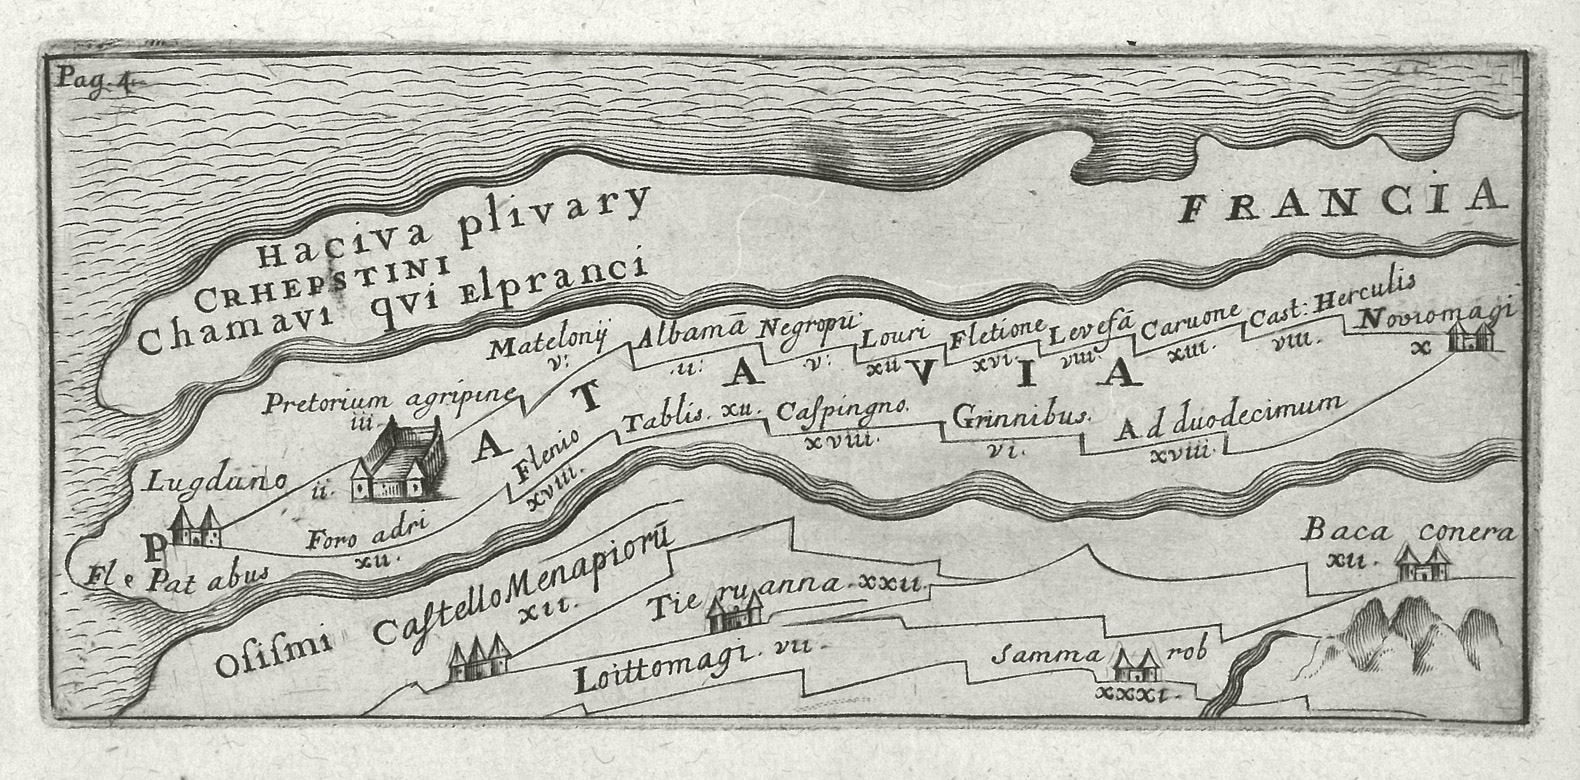 Pag. 4
Haciva plivary
CRHEPSTINI
Chamavi qvi Elpranci
FRANCIA
Matelonij
v:
Albamā
ıı:
Negropū
v:
Louri
xıı
Fletione
xvı.
Levefā
vııı
Caruone
xııı.
Cast: Herculis
vııı.
Noviomagi
x
PATAVIA
Pretorium agripine
iii
Lugduno
ii.
Flenio
xvııı.
Tablis. xıı.
Caſpingno.
xvııı.
Grinnibus.
vı.
Ad duodecimum
xvııı.
Foro adri
xıı.
Fl e Pat abus
Oſiſmi
Caſtello Menapiorū
xıı.
Tie ru anna. xxıı.
Baca conera
xıı.
Loittomagi. vıı.
Samma rob
xxxı.